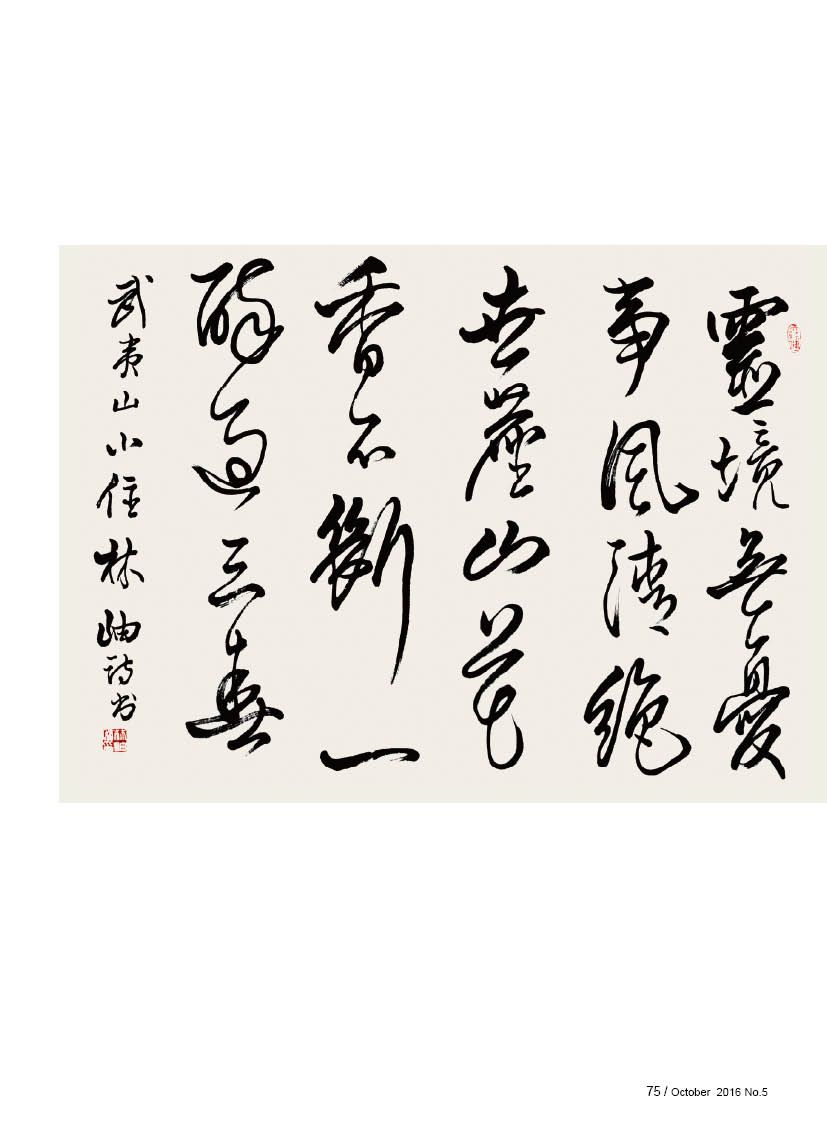 靈境無憂
事風清絶
世塵山花
香不斷一
醉過三春
武夷山小住林岫詩书
75 / October 2016 No.5